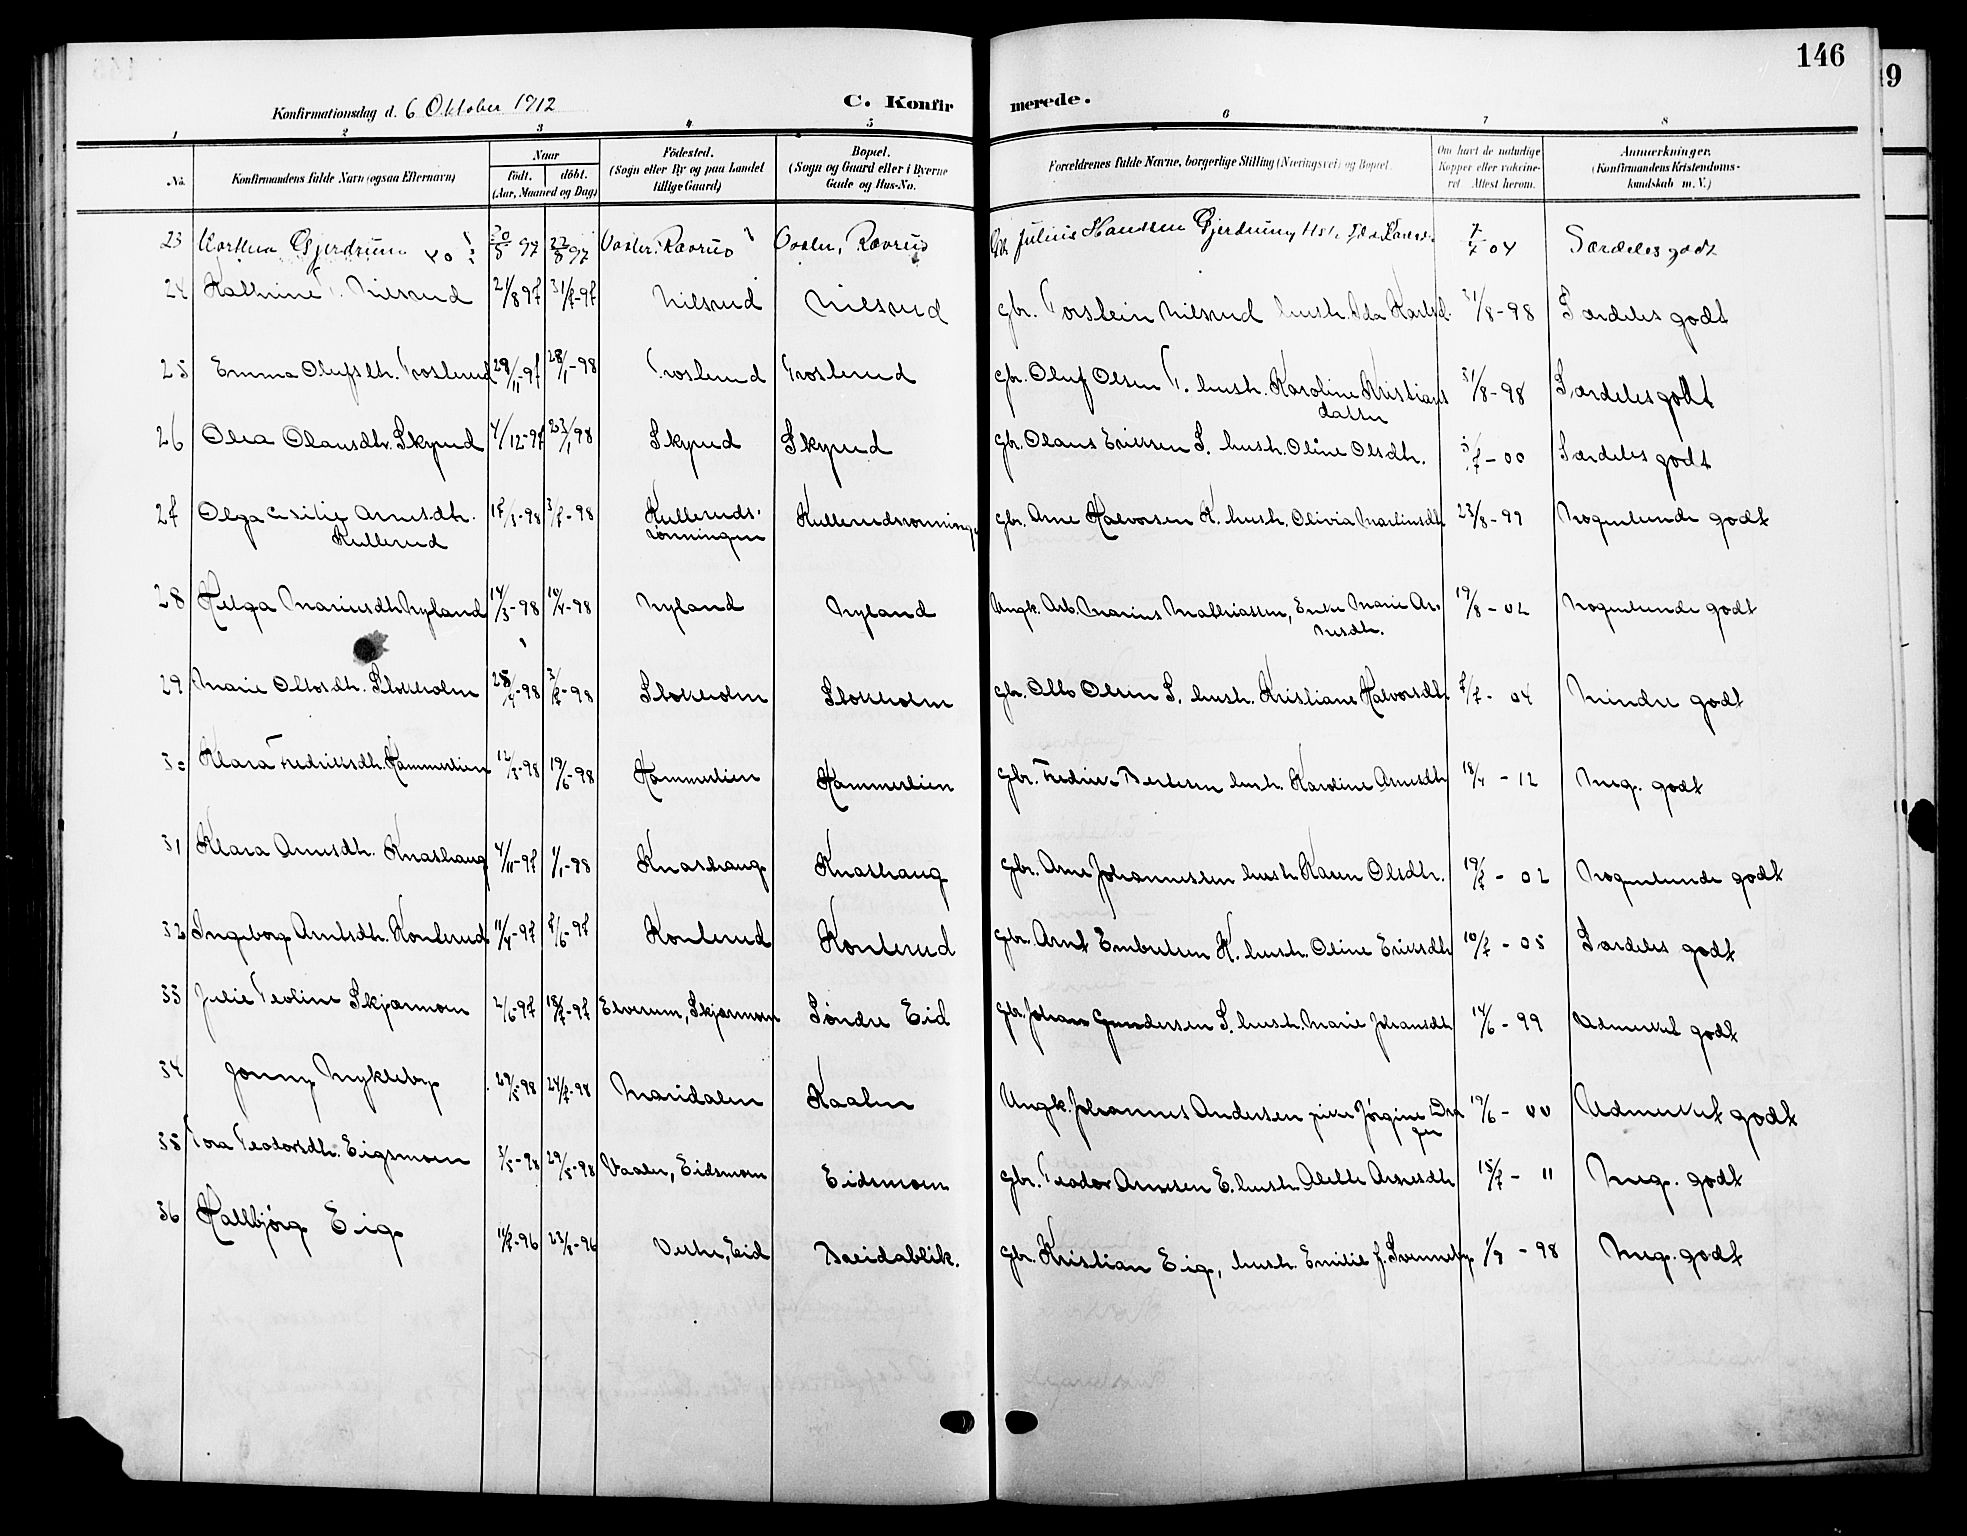 146
Konfirmationsdag d. 6 Oktober 1912
C. Konfirmerede.
1 2 3 4 5 6 7 8
No.
Konfirmandens fulde Navn (ogsaa Efternavn)
Naar
födt. döbt.
(Aar, Maaned og Dag)
Födested.
(Sogn eller By og paa Landet tillige Gaard)
Bopæl.
(Sogn og Gaard eller i Byerne Gade og Hus-No.
Forældrenes fulde Navne, borgerlige Stilling (Næringsvei) og Bopæl.
Om havt de naturlige Kopper eller vaccineret. Attest herom.
Anmærkninger.
(Konfirmandens Kristendomskundskab m. V.)
23 Gjerdrum 97 Vaaler, Rævrud Vaaler, Rævrud Gbr. Julius Hansen Gjerdrum 04 Særdeles godt
24 Nilsrud 21/8 97 Nilsrud Nilsrud Gbr. Torstein Nilsrud hustr. Ida Karlsd. 31/8-98 Særdeles godt
25 Emma Olufsdtr. Troslerud 29/11-97 28/1-98 Troslerud Troslerud Gbr. Oluf Olsen T. hustr. Karoline Kristiansdatter 31/8-98 Særdeles godt
26 Olea Olausdtr. Skyrud 4/12-97 23/1 98 Skyrud Skyrud Gbr. Olaus Eriksen S. hustr. Oline Olsdtr. Særdeles godt
27 Olga Cesilie Arnesdtr. Kullerud 3/7-98 Kullerudsrönningen Kullerudsrönningen Gbr. Arne Halvorsen K. hustr. Olivia Martinsdtr. 23/8-99 Nogenlunde godt
28 Helga Mariusdtr. Nyland 14/3-98 10/4-98 Nyland Nyland Ungk. Arb. Marius Mathiassen, Enke Marie Arnesdtr. 19/8-02 Nogenlunde godt
29 Marie Ottosdtr. Stokholm 3/7-98 Stokholm Stokholm Gbr. Otto Olsen S. hustr. Kristiane Halvorsdtr. 7/7-04 Mindre godt
30 Klara Fredriksdtr. Kammerlien 12/3-98 19/6-98 Kammerlien Kammerlien Gbr. Fredrik hustr. Karoline Arnesdtr. 18/4-12 Meg. godt
31 Klara Arnesdtr. Knashaug 4/11-97 1/1-98 Knashaug Knashaug Gbr. Arne Johannessen hustr. Karen Olsdtr. 19/7-02 Nogenlunde godt
32 Ingeborg Arntsdtr. Konterud 11/4-97 7/6-97 Konterud Konterud Gbr. Arnt Embretsen K. hustr. Oline Eriksdtr. 10/7-05 Særdeles godt
33 Julie Teoline Skjærmoen 2/6-97 18/7-97 Elverum, Skjærmoen Söndre Eid Gbr. Johan Gundersen S. hustr. Marie Johansdtr. 14/6-99 Udmerket godt
34 Jonny Mykleby 29/5-98 24/7-98 Maridalen Kaalen Ungk. Johannes Andersen pike Jørgine 19/6-00 Udmerket godt
35 Tora Teodorsdtr. Eigsmoen 3/5-98 29/5-98 Vaaler, Eidsmoen Eidsmoen Gbr. Teodor Arnesen E. hustr. Alette Arnesdtr. 15/7-11 Meg. godt
36 Hallbjörg Eig 11/7-96 23/8-96 Vestre, Eid Breidablik. Gbr. Kristian Eig, hustr. Emilie f. Svenneby 1/9-98 Meg. godt